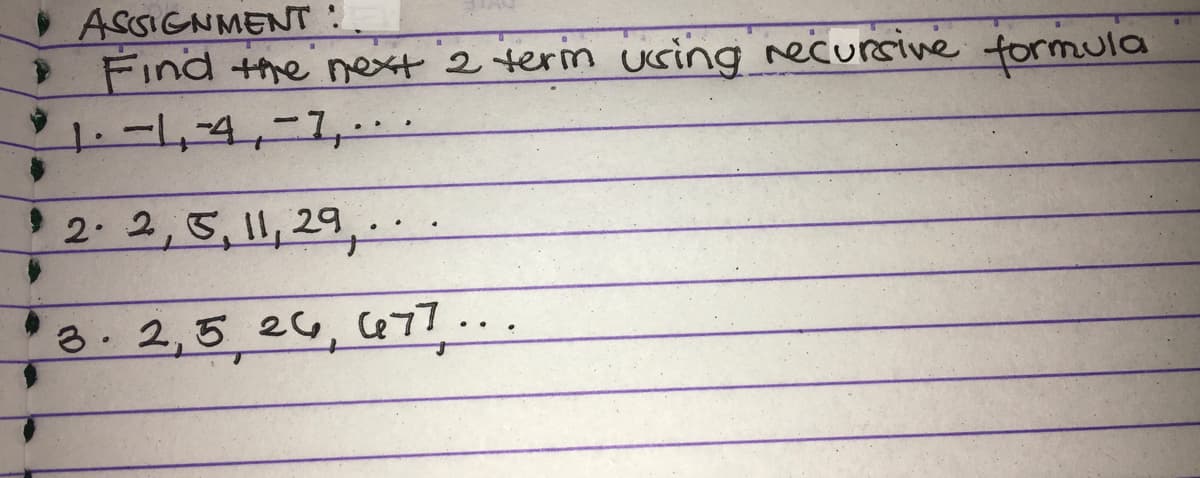 ASSIGNMENT :
Find the next 2 term using recursive formula
1. -1, -4, -7, ...
2. 2, 5, 11, 29, ...
3. 2, 5, 26, 677, ...